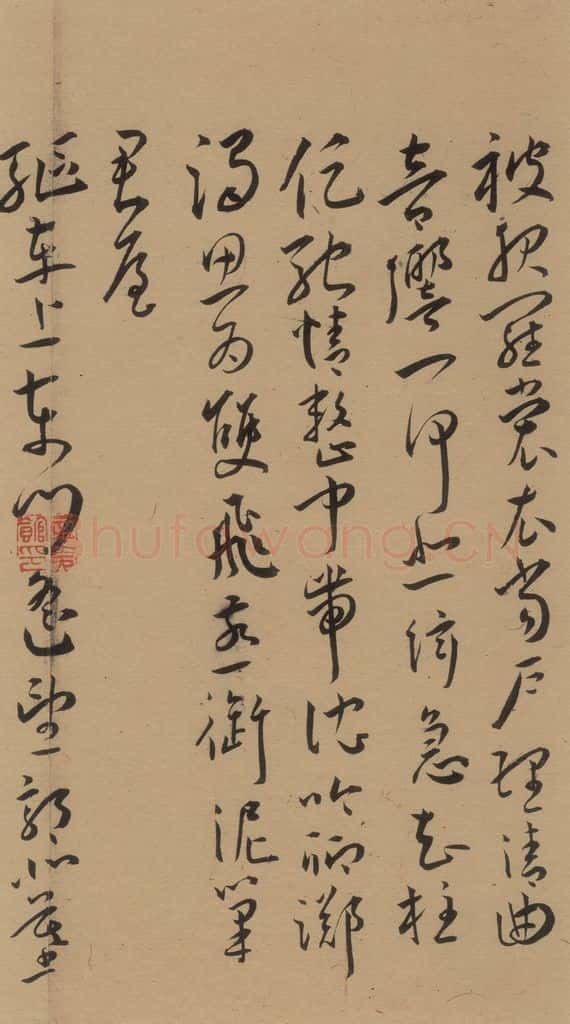 被服羅裳衣當戶理清曲
音響一何悲絃急知柱
促馳情整中帶沈吟聊躑
躅思為雙飛燕銜泥巢
君屋
驅車上東門遙望郭北墓
shufawang.CN